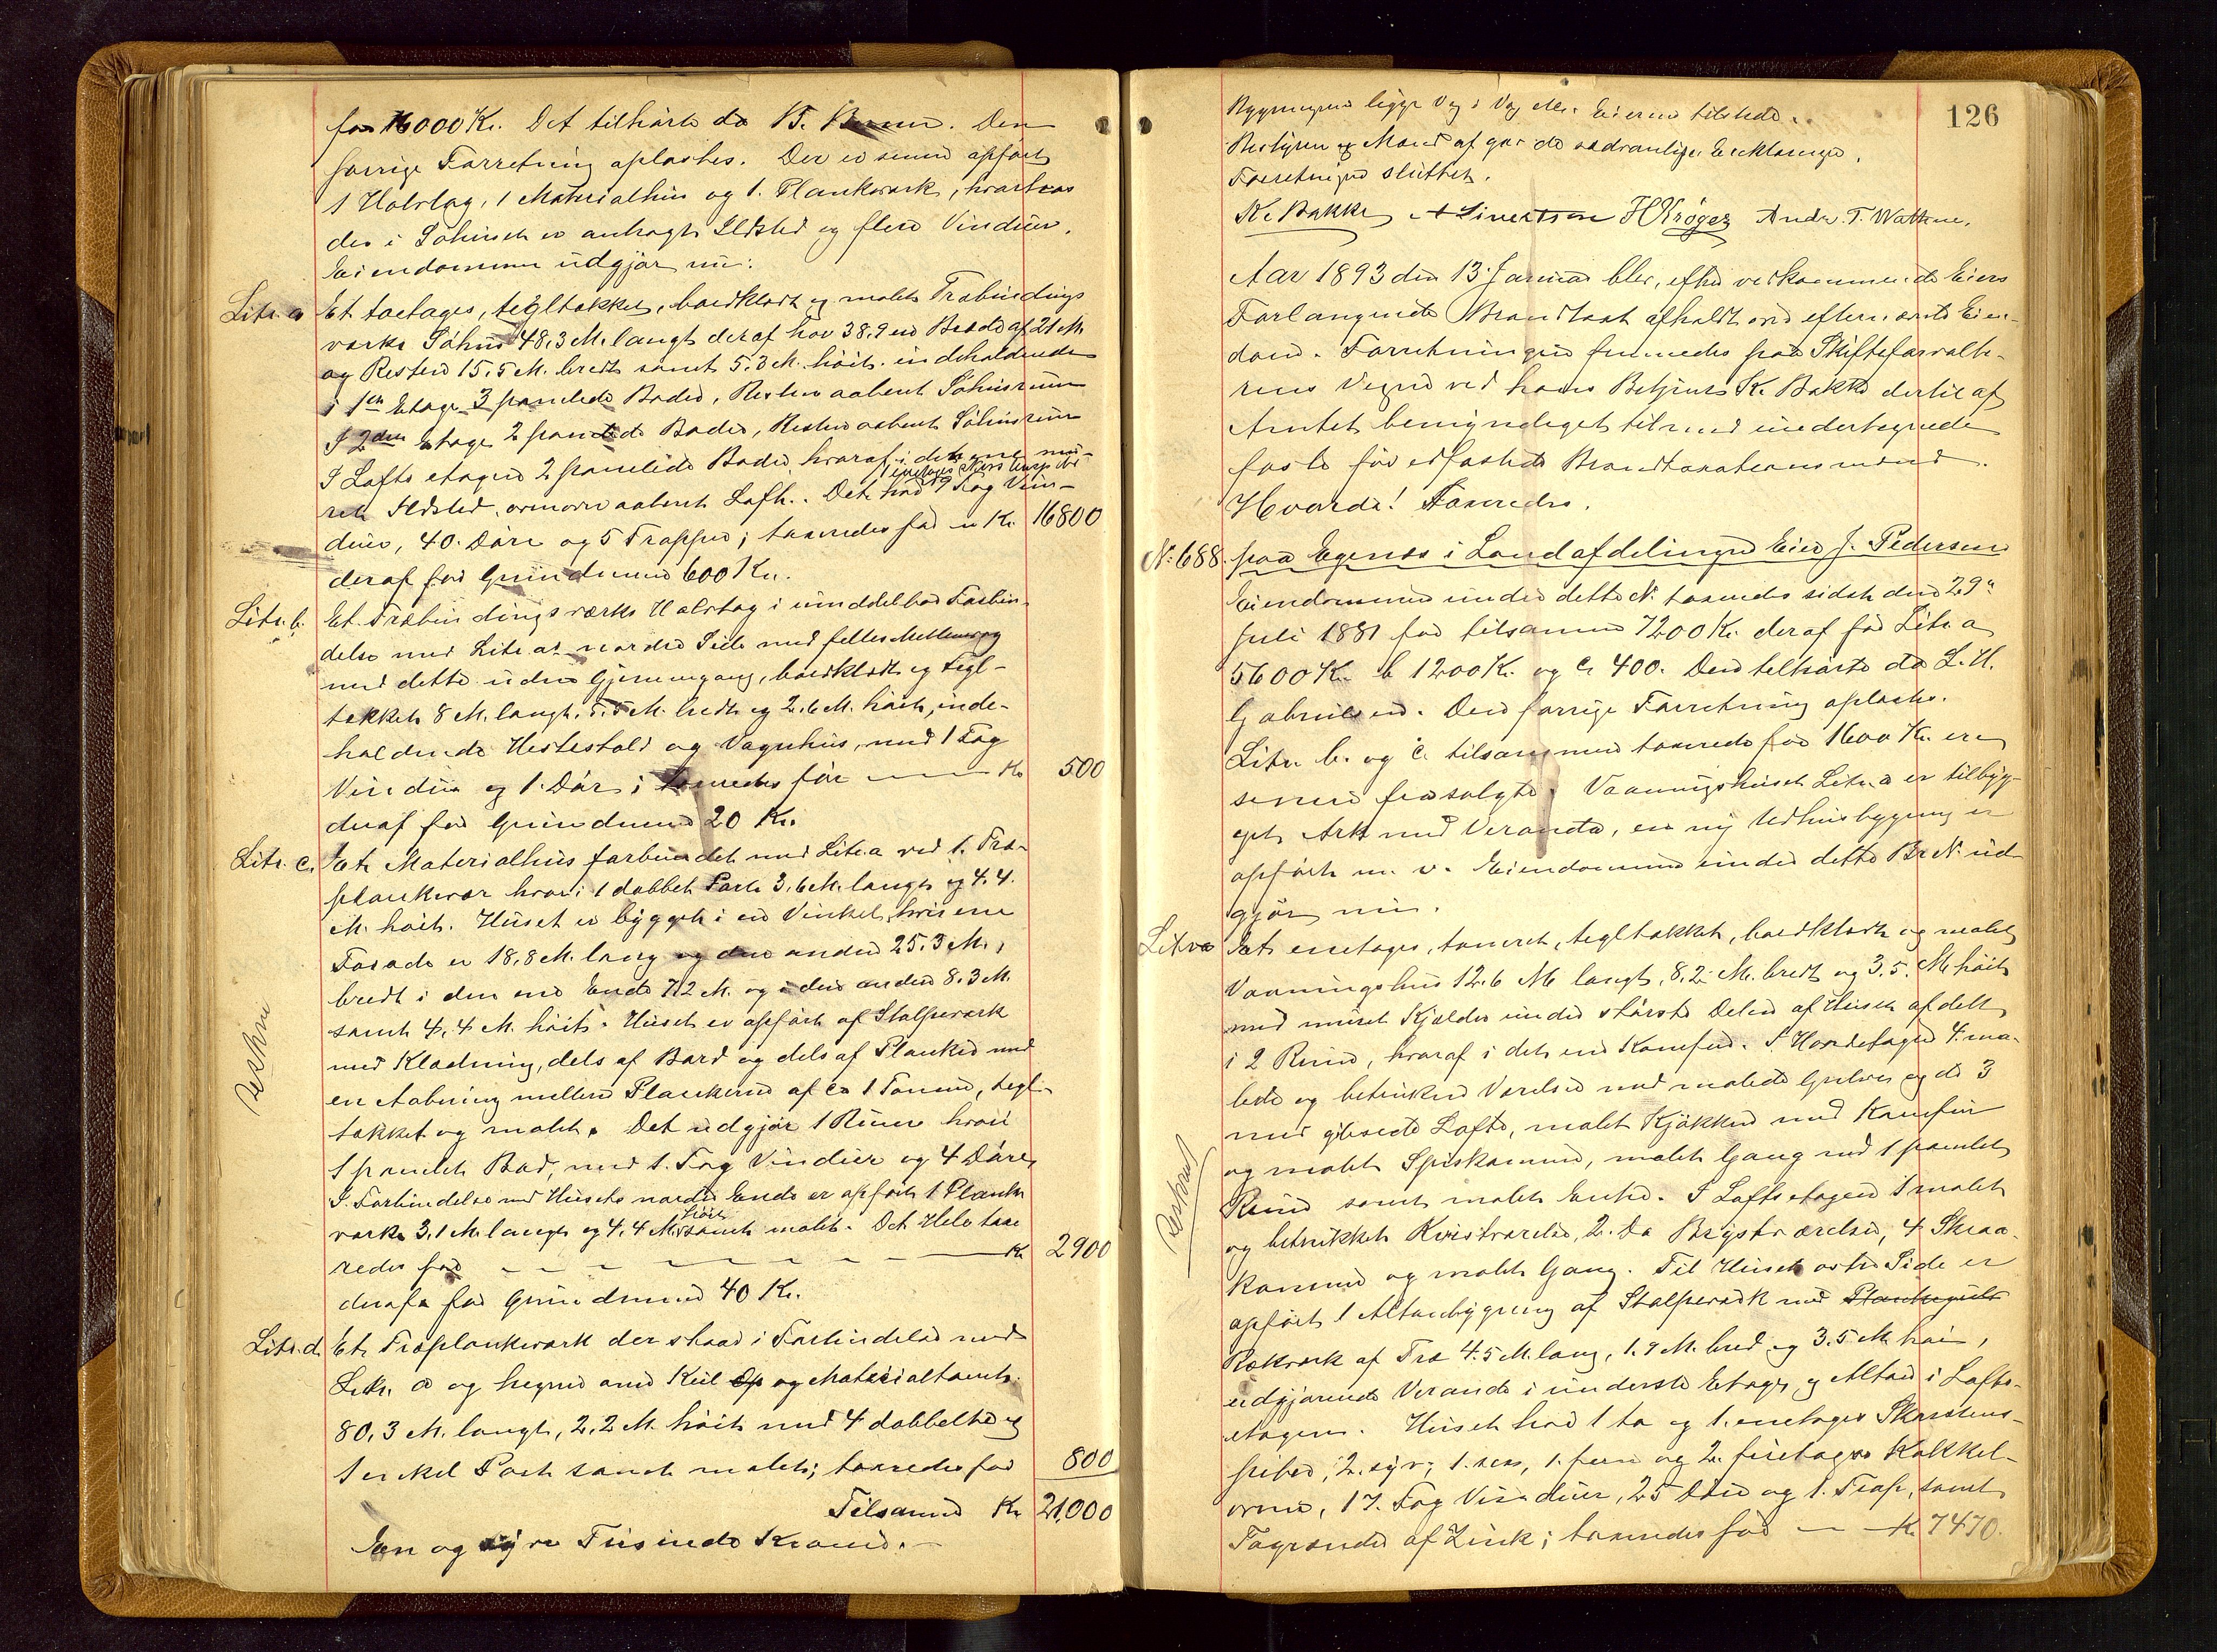 for 16000 Kr. Det tilhørte da B. Bruun. Den
forrige Forretning oplæstes. Der er senere opført
1 Halvtag, 1 Materialhus og 1. Plankværk, hvorhos
der i Søhuset er anbragt Ildsted og flere Vinduer.
Eiendommen udgjør nu:
Litr. a Et toetages, tegltækket, bordklædt og malet Træbindings
værks Søhus 48,3 M. langt deraf har 38,9 en Bredde af 21 M.
og Resten 15,5 M. bredt samt 5.3 M. høit, indeholdende
i 1ste Etage 3 panelede Boder, Resten aabent Søhusrum
I 2den Etage 2 panelede Boder, Resten aabent Søhusrum
I Lofts etagen 2 panelede Boder, hvoraf i det ene mu-
ret Ildsted, ovenover aabent Loft. Det har 1 enetages Skorstenspibe 19 Fag Vin-
duer, 40. Døre og 5 Trapper; taxeredes for Kr. 16800
deraf for Grundmuren 600 Kr.
Litr. b. Et Træbindingsværks Halvtag i umiddelbar Forbin-
delse med Litr. a's nordre Side med fælles Mellemvæg
med dette uden Gjennemgang, bordklædt og tegl-
tækket 8 M. langt, 5.5 M. bredt og 2.6 M. høit, inde-
holdende Hestestald og Vognhus, med 1 Fag
Vindue og 1. Dør; taxeredes for Kr 500
deraf for Grundmuren 20 Kr.
Litr. c. Et Materialhus forbundet med Litr. a ved 1. Træ-
plankevær hvori 1 dobbelt Port 3,6 M. langt og 4.4
M. høit. Huset er bygget i en Vinkel, hvis ene
Facade er 18,8 M. lang og den anden 25.3 M.,
bredt i den ene Ende 7.2 M. og i den anden 8.3 M.
samt 4,4 M. høit. Huset er opført af Stolpeværk
med Klædning, dels af Bord og dels af Planker med
en Aabning mellem Plankerne af ca 1 Tomme, tegl-
tækket og malet. Det udgjør 1 Rum hvori
1 panelet Bod, med 1. Fag Vinduer og 4 Døre.
I Forbindelse med Husets nordre Ende er opført 1 Plank
værk 3,1 M. langt og 4,4 M. høit samt malet. Det Hele taxe
redes for Kr 2900
deraf for Grundmuren 40 Kr.
Litr. d. Et Træplankværk der staar i Forbindelse med
Litr. a og hegner om Kul og Materialtomt.
80,3 M. langt, 2.2 M. høit med 4 dobbelte og
1 enkel Port samt malet; taxeredes for 800
Tilsammen Kr 21,000
En og tyve Tusinde Kroner.
Beskrevet
Bygningen ligger Veg i Veg Eieren tilstede.
Bestyrer og Mænd afgav de sædvanlige Erklæringer.
Forretningen sluttet.
K. Bakke A Sivertsen H Krøger Andr. T. Wathne.
126
Aar 1893 den 13. Januar blev, efter vedkommende Eiers
Forlangende Brandtaxt afholdt over efternævnte Eien-
dom. Forretningen fremmedes paa Skifteforvalte-
rens Vegne ved hans Betjent K. Bakke dertil af
Amtet bemyndiget tilmed undertegnede
faste for edfæstede Brandtaxationsmænd.
Hvorda! Taxeredes.
No. 688. paa Egenæs i Landafdelingen Eier J. Pedersen
Eiendommen under dette No. taxeredes sidst den 29de
Juli 1881 for tilsammen 7200 Kr. deraf for Litr. a
5600 Kr. b 1200 Kr. og c 400. Den tilhørte da L. H.
Gabrielsen. Den forrige Forretning oplæstes.
Litr. b. og c. tilsammen taxerede for 1600 Kr. er
senere frasolgte. Vaaningshuset Litr. a er tilbyg-
get Ark med Veranda, en ny Udhusbygning er
opført m. v. Eiendommen under dette Br. No. ud
gjør nu.
Litr. a Et enetages, tømret, tegltækket, bordklædt og malet
Vaaningshus 12.6 M. langt, 8,2 M. bredt og 3,5. M. høit
med muret Kjælder under største Delen af Huset afdelt
i 2 Rum, hvoraf i det ene Komfur. I Hovedetagen 4 ma-
lede og betrukne Værelser med malede Gulve og de 3
med gibsede Lofte, malet Kjøkken med Komfur
og malet Spiskammer, malet Gang med 1 panelet
Rum samt malet Entre. I Loftsetagen 1 malet
og betrukket Kvistværelse, 2. do Brystværelser, 4 Skraa-
kammer og malet Gang. Til Husets østre Side er
opført 1 Altanbygning af Stolpeværk med Plankegulv
Rækværk af Træ 4.5 M. lang, 1.9 M. bred og 3.5 M. høi,
udgjørende Veranda i underste Etage og Altan i Lofts-
etagen. Huset har 1 to og 1. enetages Skorstens-
piber, 2. syv, 1. sex, 1. fem og 2. firetages Kakkel-
ovne, 17. Fag Vinduer, 25 Døre og 1. Trap, samt
Tagrender af Zink; taxeredes for Kr 7470.
Beskrevet